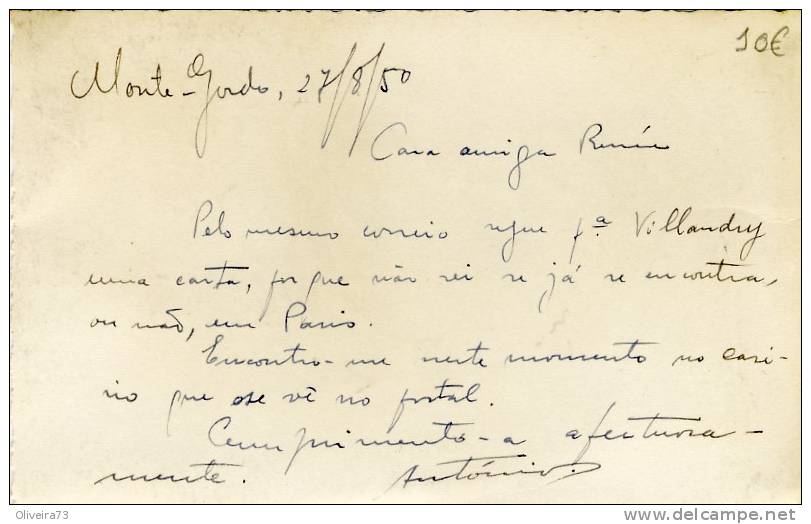 10€
Monte-Gordo, 27/8/50
Cara amiga Renée
Pelo mesmo correio segue pª Villandry
uma carta, porque não sei se já se encontra,
ou não, em Paris.
Encontro-me neste momento no casi-
no que se vê no postal.
Cumprimento-a afectuosa-
mente. António.
Oliveira73
www.delcampe.net